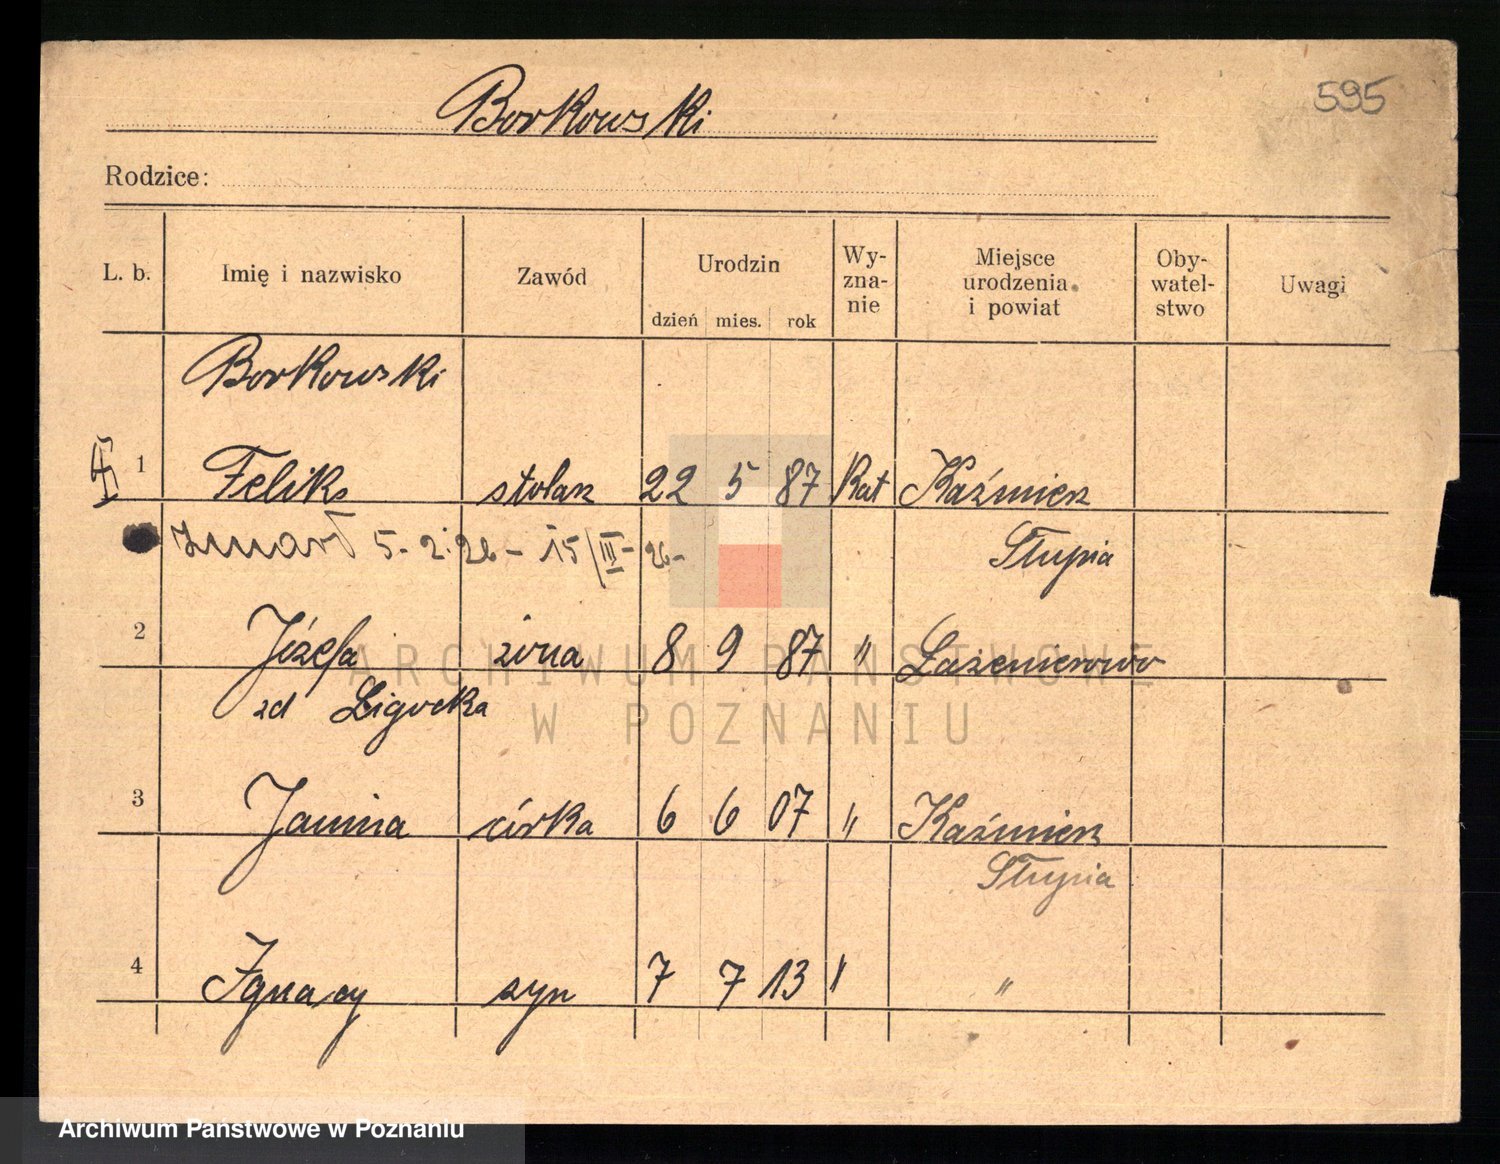 595
Borkowski
Rodzice:
L. b. Imię i nazwisko Zawód Urodzin dzień mies. rok Wy-zna-nie Miejsce urodzenia i powiat Oby-watel-stwo Uwagi
Borkowski
1 Feliks stolarz 22 5 87 Kat Kaźmierz
Słupia
zmarł 5. 2. 26 - 15/III - 26 -
2 Józefa żona 8 9 87 "
zd Ligocka
3 Janina córka 6 6 07 " Kaźmierz
Słupia
4 Ignacy syn 7 7 13 " "
ARCHIWUM PAŃSTWOWE
W POZNANIU
Archiwum Państwowe w Poznaniu